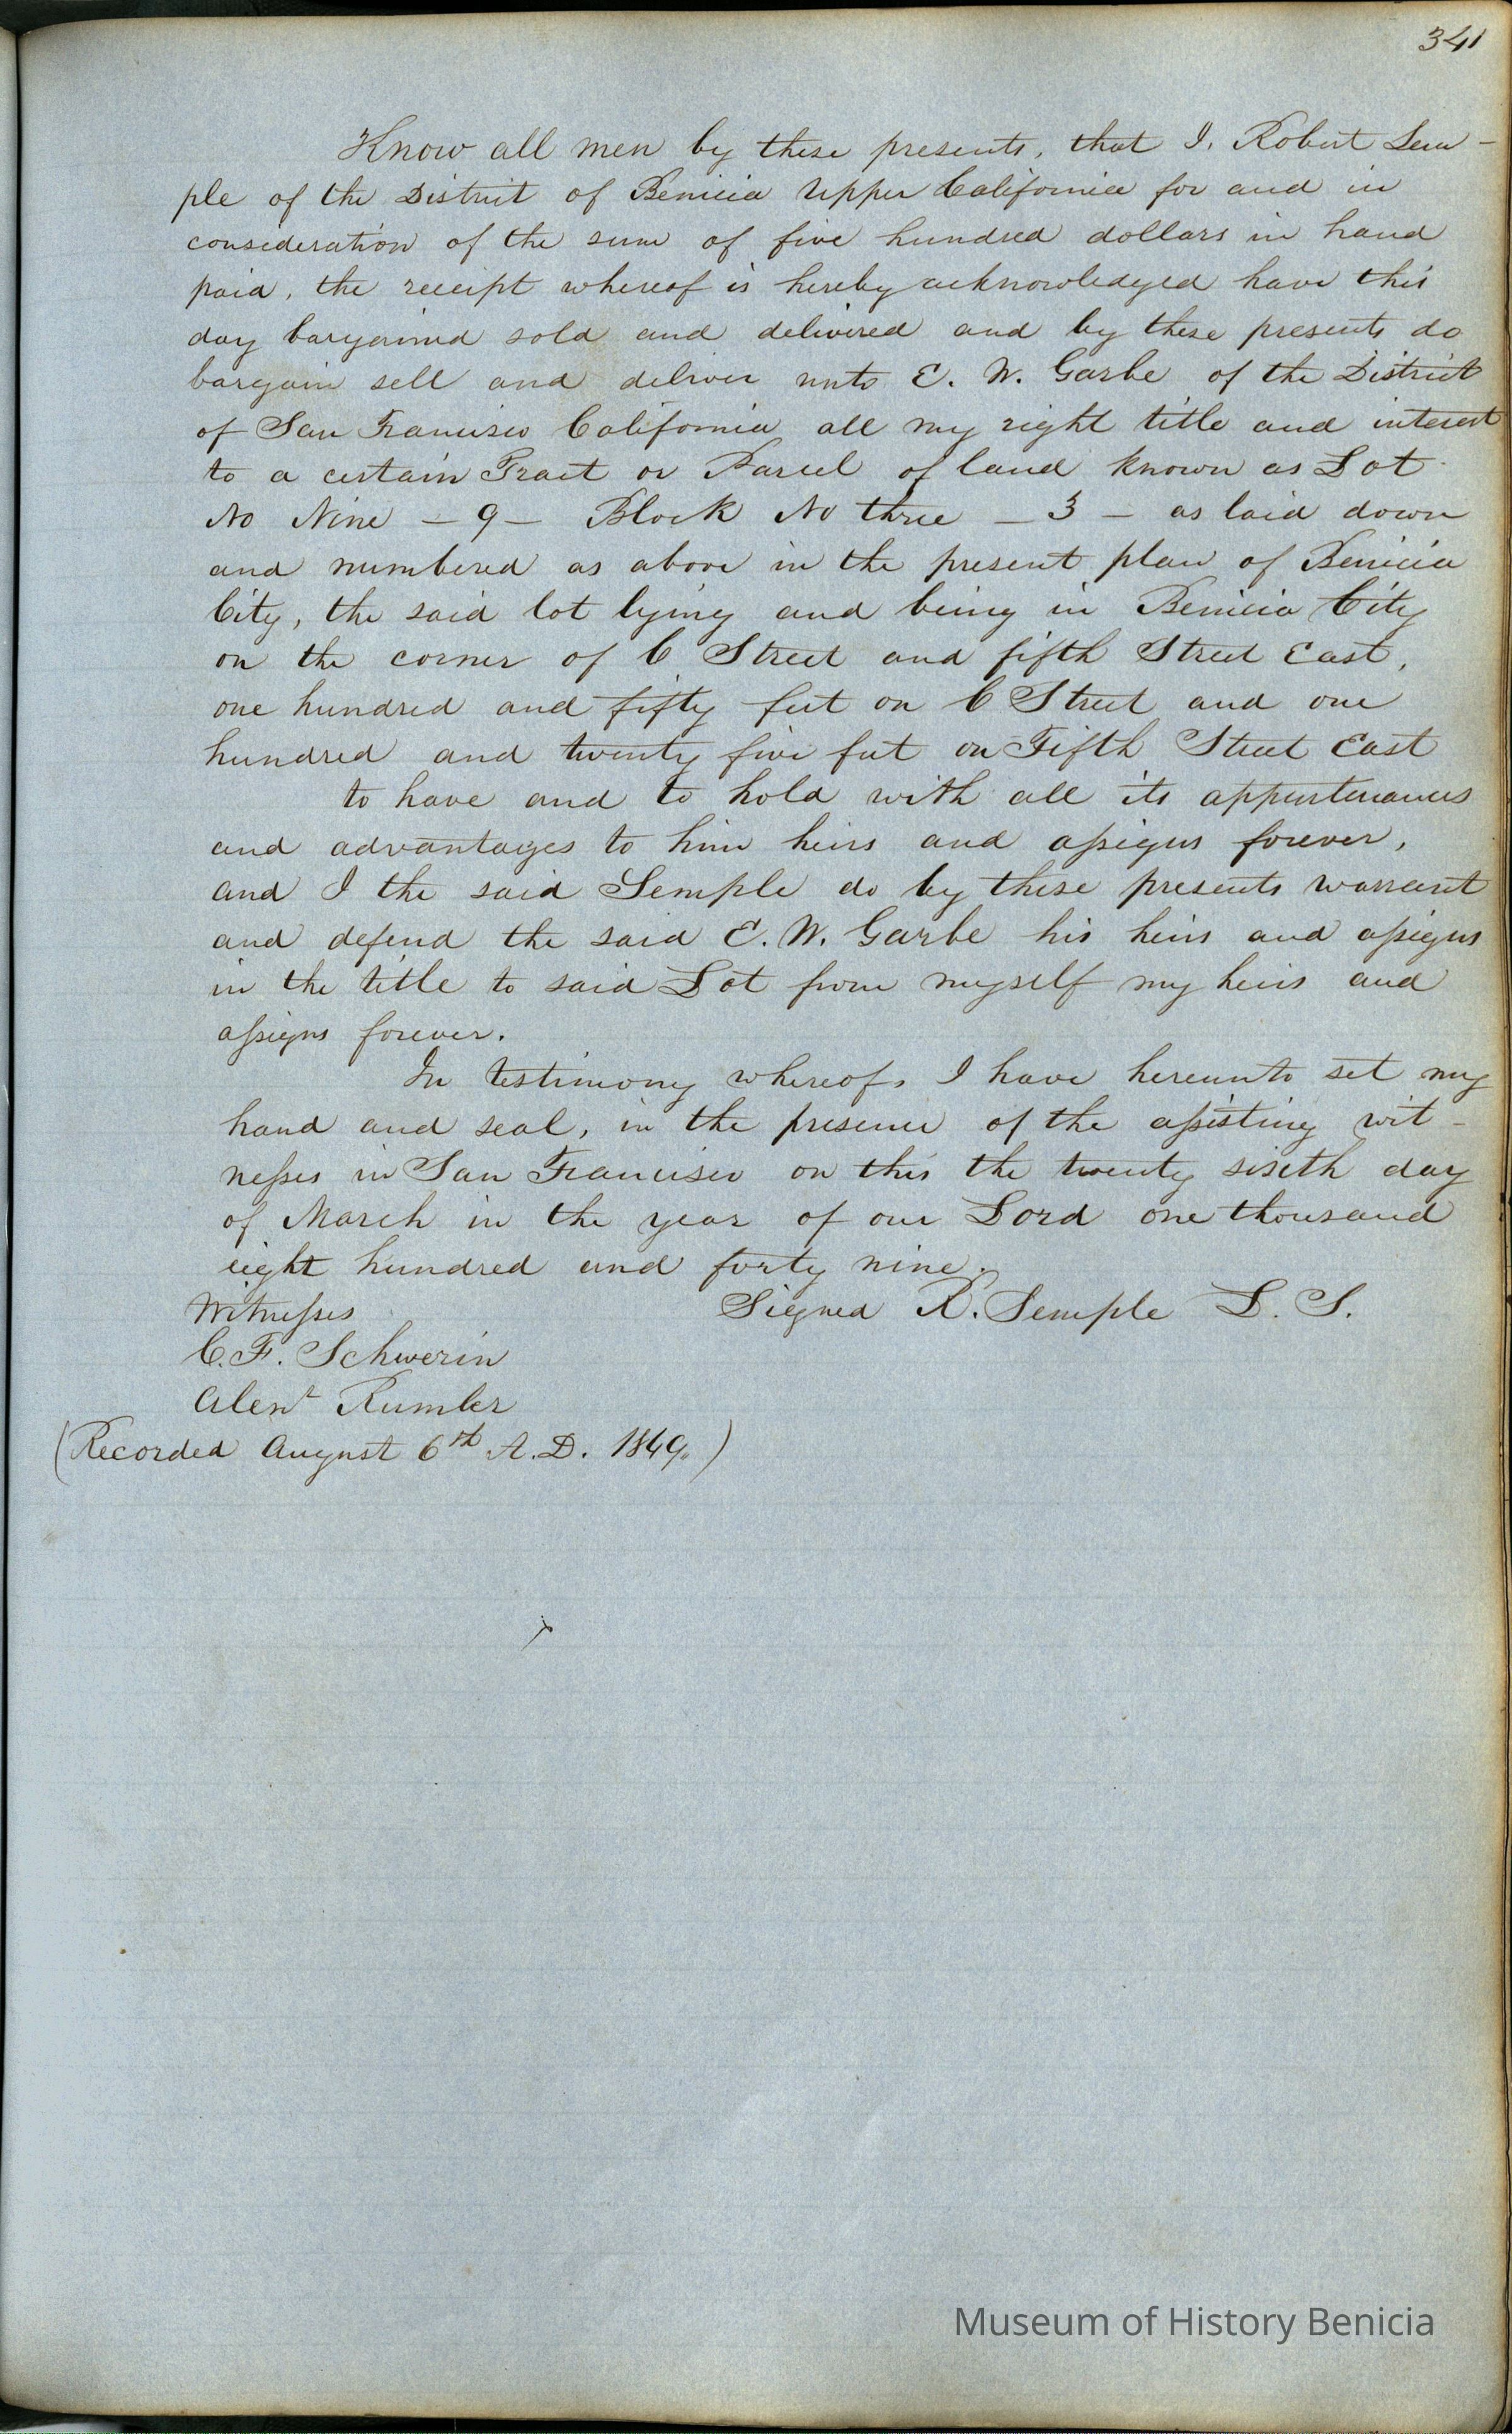 341
Know all men by these presents, that I, Robert Sem-
ple of the District of Benicia Upper California for and in
consideration of the sum of five hundred dollars in hand
paid, the receipt whereof is hereby acknowledged have this
day bargained sold and delivered and by these presents do
bargain sell and deliver unto E. W. Garbe of the District
of San Francisco California all my right title and interest
to a certain Tract or Parcel of land known as Lot
No Nine – 9 – Block No three – 3 – as laid down
and numbered as above in the present plan of Benicia
City, the said lot lying and being in Benicia City
on the corner of C Street and fifth Street East,
one hundred and fifty feet on C Street and one
hundred and twenty five feet on Fifth Street East
to have and to hold with all its appurtenances
and advantages to him heirs and assigns forever,
and I the said Semple do by these presents warrant
and defend the said E. W. Garbe his heirs and assigns
in the title to said Lot from myself my heirs and
assigns forever.
In testimony whereof, I have hereunto set my
hand and seal, in the presence of the assisting wit-
nesses in San Francisco on this the twenty sixth day
of March in the year of our Lord one thousand
eight hundred and forty nine.
Witnesses Signed R. Semple L. S.
C. F. Schwerin
Rumler
(Recorded August 6th A.D. 1849.)
Museum of History Benicia